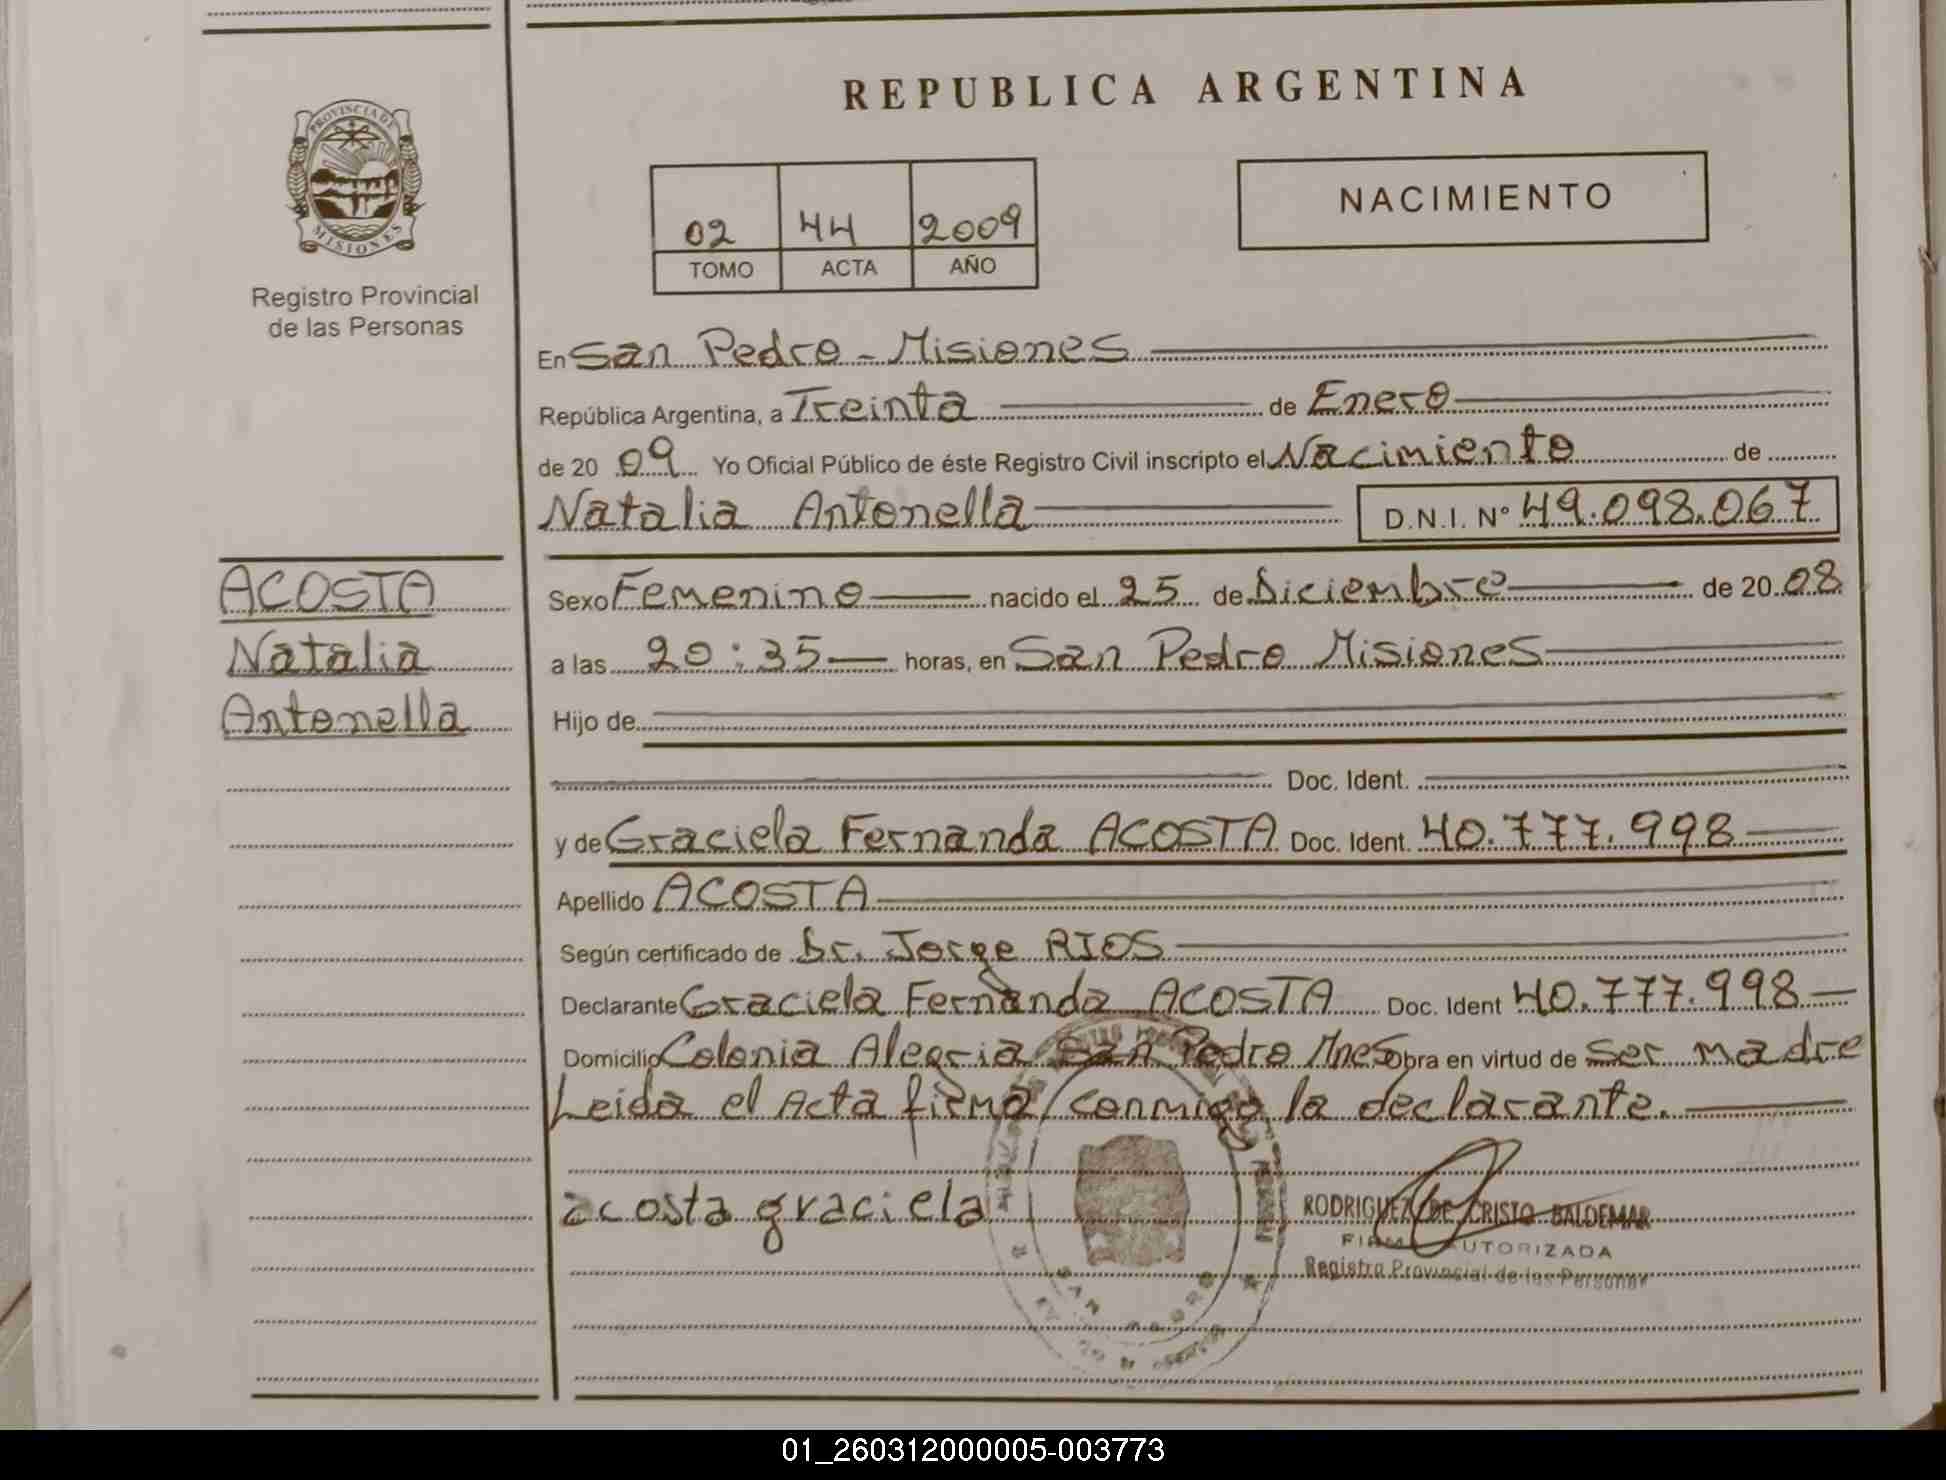 REPUBLICA ARGENTINA
PROVINCIA DE
MISIONES
Registro Provincial
de las Personas
02 44 2009
TOMO ACTA AÑO
NACIMIENTO
En San Pedro - Misiones
República Argentina, a Treinta de Enero
de 20 09 Yo Oficial Público de éste Registro Civil inscripto el Nacimiento de
Natalia Antonella D.N.I. N° 49.098.067
ACOSTA
Natalia
Antonella
Sexo Femenino nacido el 25 de Diciembre de 20 08
a las 20:35 horas, en San Pedro Misiones
Hijo de
Doc. Ident.
y de Graciela Fernanda ACOSTA Doc. Ident. 40.777.998
Apellido ACOSTA
Según certificado de Dr. Jorge RIOS
Declarante Graciela Fernanda ACOSTA Doc. Ident 40.777.998
Domicilio Colonia Alegria San Pedro Mnes Obra en virtud de ser madre
Leida el Acta firma conmigo la declarante.
acosta graciela
RODRIGUEZ DE CRISTO BALDEMAR
FIRMA AUTORIZADA
Registro Provincial de las Personas
SAN PEDRO
01_260312000005-003773